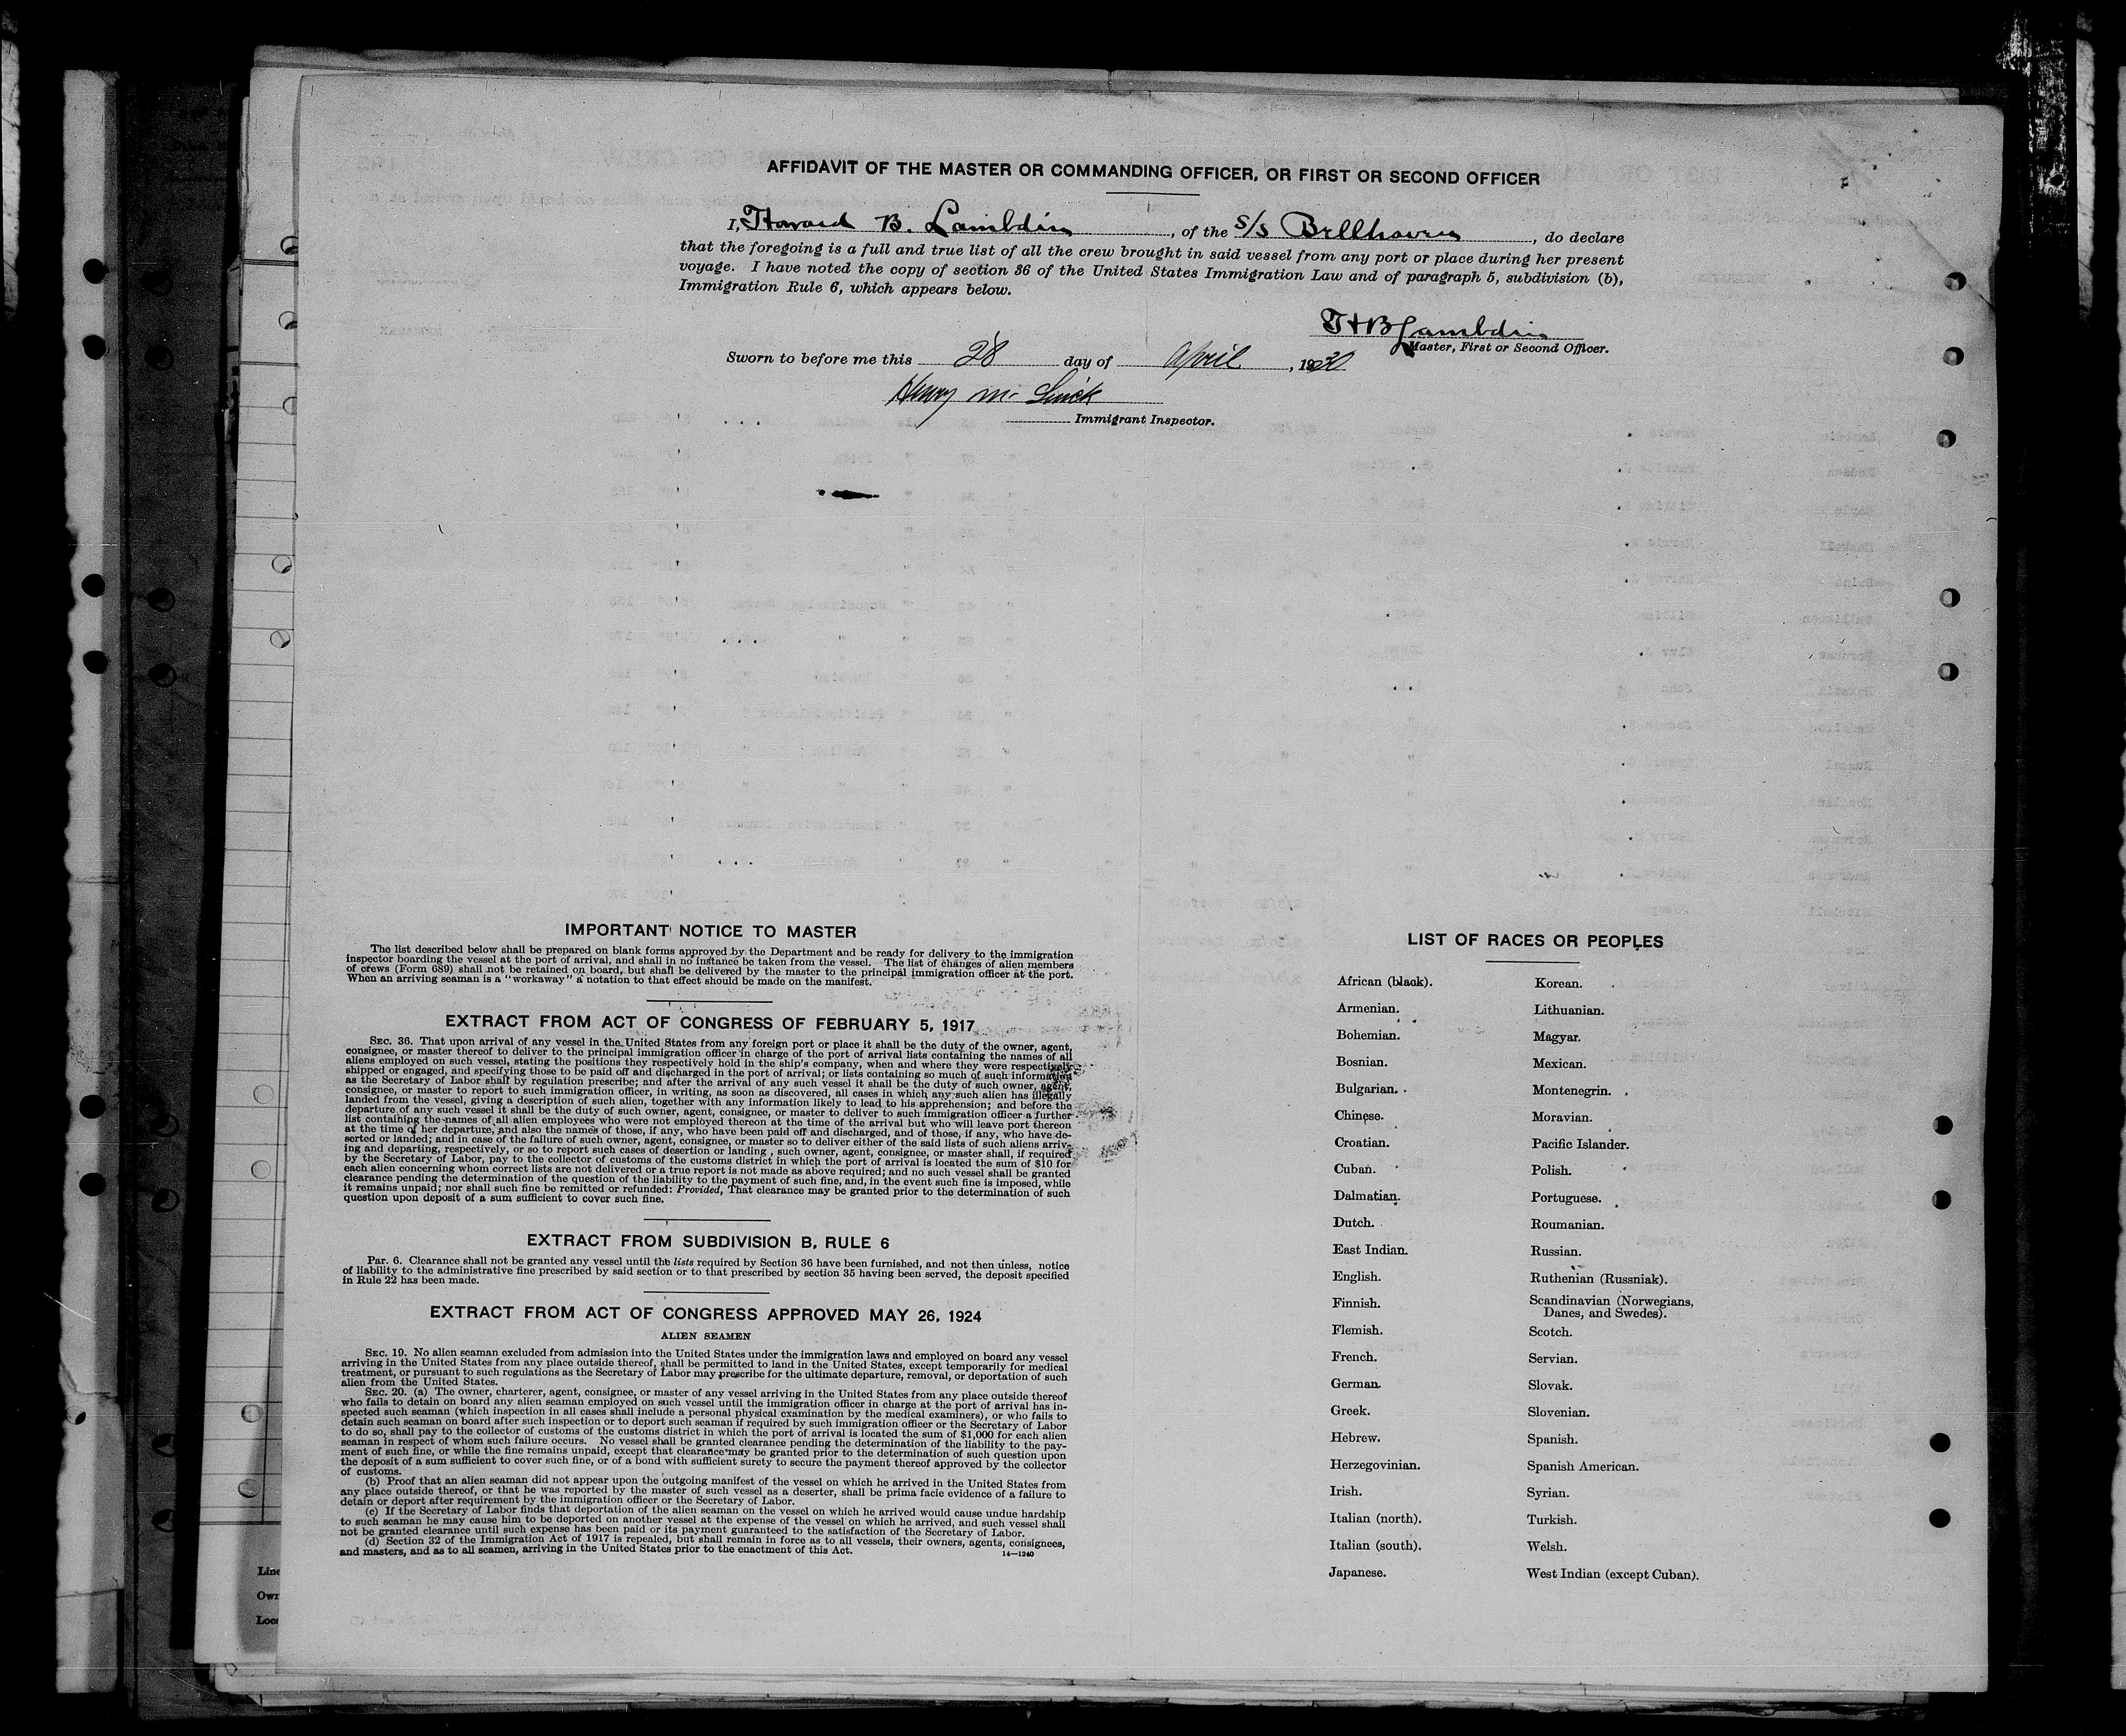 AFFIDAVIT OF THE MASTER OR COMMANDING OFFICER, OR FIRST OR SECOND OFFICER
I, Howard B. Lambdin, of the S/S Bellhaven, do declare
that the foregoing is a full and true list of all the crew brought in said vessel from any port or place during her present
voyage. I have noted the copy of section 36 of the United States Immigration Law and of paragraph 5, subdivision (b),
Immigration Rule 6, which appears below.
H B Lambdin
Master, First or Second Officer.
Sworn to before me this 28 day of April, 1930
Henry M.
Immigrant Inspector.
IMPORTANT NOTICE TO MASTER
The list described below shall be prepared on blank forms approved by the Department and be ready for delivery to the immigration
inspector boarding the vessel at the port of arrival, and shall in no instance be taken from the vessel. The list of changes of alien members
of crews (Form 689) shall not be retained on board, but shall be delivered by the master to the principal immigration officer at the port.
When an arriving seaman is a "workaway" a notation to that effect should be made on the manifest.
EXTRACT FROM ACT OF CONGRESS OF FEBRUARY 5, 1917
SEC. 36. That upon arrival of any vessel in the United States from any foreign port or place it shall be the duty of the owner, agent,
consignee, or master thereof to deliver to the principal immigration officer in charge of the port of arrival lists containing the names of all
aliens employed on such vessel, stating the positions they respectively hold in the ship's company, when and where they were respectively
shipped or engaged, and specifying those to be paid off and discharged in the port of arrival; or lists containing so much of such information
as the Secretary of Labor shall by regulation prescribe; and after the arrival of any such vessel it shall be the duty of such owner, agent,
consignee, or master to report to such immigration officer, in writing, as soon as discovered, all cases in which any such alien has illegally
landed from the vessel, giving a description of such alien, together with any information likely to lead to his apprehension; and before the
departure of any such vessel it shall be the duty of such owner, agent, consignee, or master to deliver to such immigration officer a further
list containing the names of all alien employees who were not employed thereon at the time of the arrival but who will leave port thereon
at the time of her departure, and also the names of those, if any, who have been paid off and discharged, and of those, if any, who have de-
serted or landed; and in case of the failure of such owner, agent, consignee, or master so to deliver either of the said lists of such aliens arriv-
ing and departing, respectively, or so to report such cases of desertion or landing, such owner, agent, consignee, or master, shall, if required
by the Secretary of Labor, pay to the collector of customs of the customs district in which the port of arrival is located the sum of $10 for
each alien concerning whom correct lists are not delivered or a true report is not made as above required; and no such vessel shall be granted
clearance pending the determination of the question of the liability to the payment of such fine, and, in the event such fine is imposed, while
it remains unpaid; nor shall such fine be remitted or refunded: Provided, That clearance may be granted prior to the determination of such
question upon deposit of a sum sufficient to cover such fine.
EXTRACT FROM SUBDIVISION B, RULE 6
Par. 6. Clearance shall not be granted any vessel until the lists required by Section 36 have been furnished, and not then unless, notice
of liability to the administrative fine prescribed by said section or to that prescribed by section 35 having been served, the deposit specified
in Rule 22 has been made.
EXTRACT FROM ACT OF CONGRESS APPROVED MAY 26, 1924
ALIEN SEAMEN
SEC. 19. No alien seaman excluded from admission into the United States under the immigration laws and employed on board any vessel
arriving in the United States from any place outside thereof, shall be permitted to land in the United States, except temporarily for medical
treatment, or pursuant to such regulations as the Secretary of Labor may prescribe for the ultimate departure, removal, or deportation of such
alien from the United States.
SEC. 20. (a) The owner, charterer, agent, consignee, or master of any vessel arriving in the United States from any place outside thereof
who fails to detain on board any alien seaman employed on such vessel until the immigration officer in charge at the port of arrival has in-
spected such seaman (which inspection in all cases shall include a personal physical examination by the medical examiners), or who fails to
detain such seaman on board after such inspection or to deport such seaman if required by such immigration officer or the Secretary of Labor
to do so, shall pay to the collector of customs of the customs district in which the port of arrival is located the sum of $1,000 for each alien
seaman in respect of whom such failure occurs. No vessel shall be granted clearance pending the determination of the liability to the pay-
ment of such fine, or while the fine remains unpaid, except that clearance may be granted prior to the determination of such question upon
the deposit of a sum sufficient to cover such fine, or of a bond with sufficient surety to secure the payment thereof approved by the collector
of customs.
(b) Proof that an alien seaman did not appear upon the outgoing manifest of the vessel on which he arrived in the United States from
any place outside thereof, or that he was reported by the master of such vessel as a deserter, shall be prima facie evidence of a failure to
detain or deport after requirement by the immigration officer or the Secretary of Labor.
(c) If the Secretary of Labor finds that deportation of the alien seaman on the vessel on which he arrived would cause undue hardship
to such seaman he may cause him to be deported on another vessel at the expense of the vessel on which he arrived, and such vessel shall
not be granted clearance until such expense has been paid or its payment guaranteed to the satisfaction of the Secretary of Labor.
(d) Section 32 of the Immigration Act of 1917 is repealed, but shall remain in force as to all vessels, their owners, agents, consignees,
and masters, and as to all seamen, arriving in the United States prior to the enactment of this Act.
14—1240
LIST OF RACES OR PEOPLES
African (black).
Armenian.
Bohemian.
Bosnian.
Bulgarian.
Chinese.
Croatian.
Cuban.
Dalmatian.
Dutch.
East Indian.
English.
Finnish.
Flemish.
French.
German.
Greek.
Hebrew.
Herzegovinian.
Irish.
Italian (north).
Italian (south).
Japanese.
Korean.
Lithuanian.
Magyar.
Mexican.
Montenegrin.
Moravian.
Pacific Islander.
Polish.
Portuguese.
Roumanian.
Russian.
Ruthenian (Russniak).
Scandinavian (Norwegians,
Danes, and Swedes).
Scotch.
Servian.
Slovak.
Slovenian.
Spanish.
Spanish American.
Syrian.
Turkish.
Welsh.
West Indian (except Cuban).
Line
Own
Loca